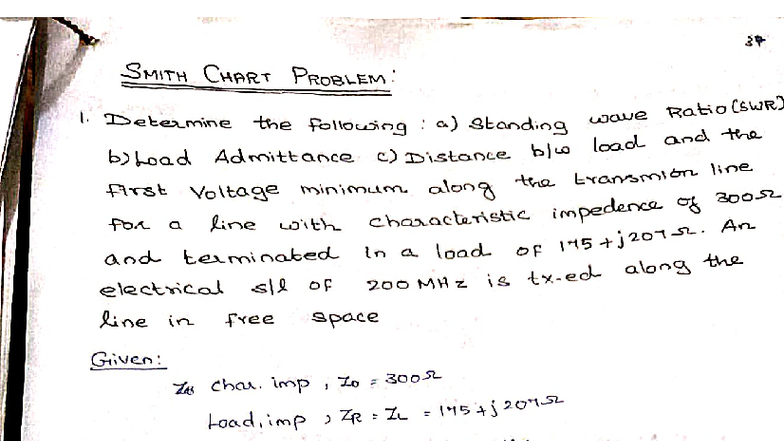 37
SMITH CHART PROBLEM:
1. Determine the following : a) Standing wave Ratio (SWR)
b) Load Admittance c) Distance b/w load and the
first Voltage minimum along the transmion line
for a line with characteristic impedence of 300Ω
and terminated in a load of 175 + j207Ω. An
electrical s/l of 200 MHz is tx-ed along the
line in free space
Given:
Char. imp, Zo = 300Ω
Load, imp, ZR = ZL = 175 + j 207Ω